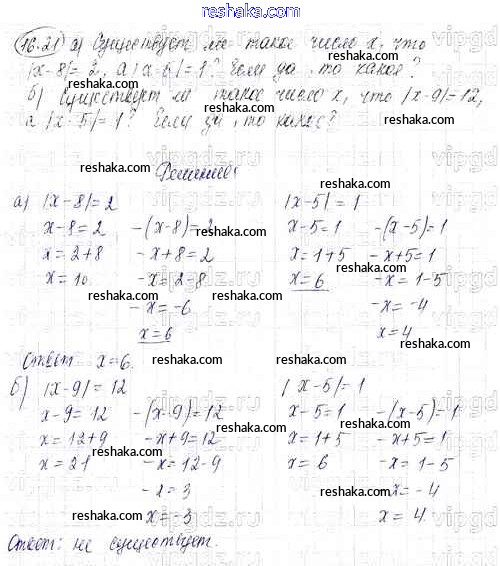 reshaka.com
16.21 а) Существует ли такое число x, что
|x-8|=2, а |x-5|=1? Если да, то какое?
б) Существует ли такое число x, что |x-9|=12,
а |x-5|=1? Если да, то какое?
reshaka.com
Решение:
reshaka.com
а) |x-8|=2 |x-5|=1
reshaka.com reshaka.com
x-8=2 -(x-8)=2 x-5=1 -(x-5)=1
x=2+8 -x+8=2 x=1+5 -x+5=1
reshaka.com
x=10. -x=2-8 x=6 -x=1-5
reshaka.com reshaka.com
-x=-6 -x=-4
x=6 x=4
reshaka.com
Ответ x=6.
reshaka.com
б) |x-9|=12 |x-5|=1
reshaka.com
x-9=12 -(x-9)=12 x-5=1 -(x-5)=1
reshaka.com
x=12+9 -x+9=12 x=1+5 -x+5=1
reshaka.com
x=21 -x=12-9 x=6 -x=1-5
reshaka.com
-x=3 -x=-4
reshaka.com
x=-3 x=4
reshaka.com
Ответ: не существует.
reshaka.com
vipgdz.ru